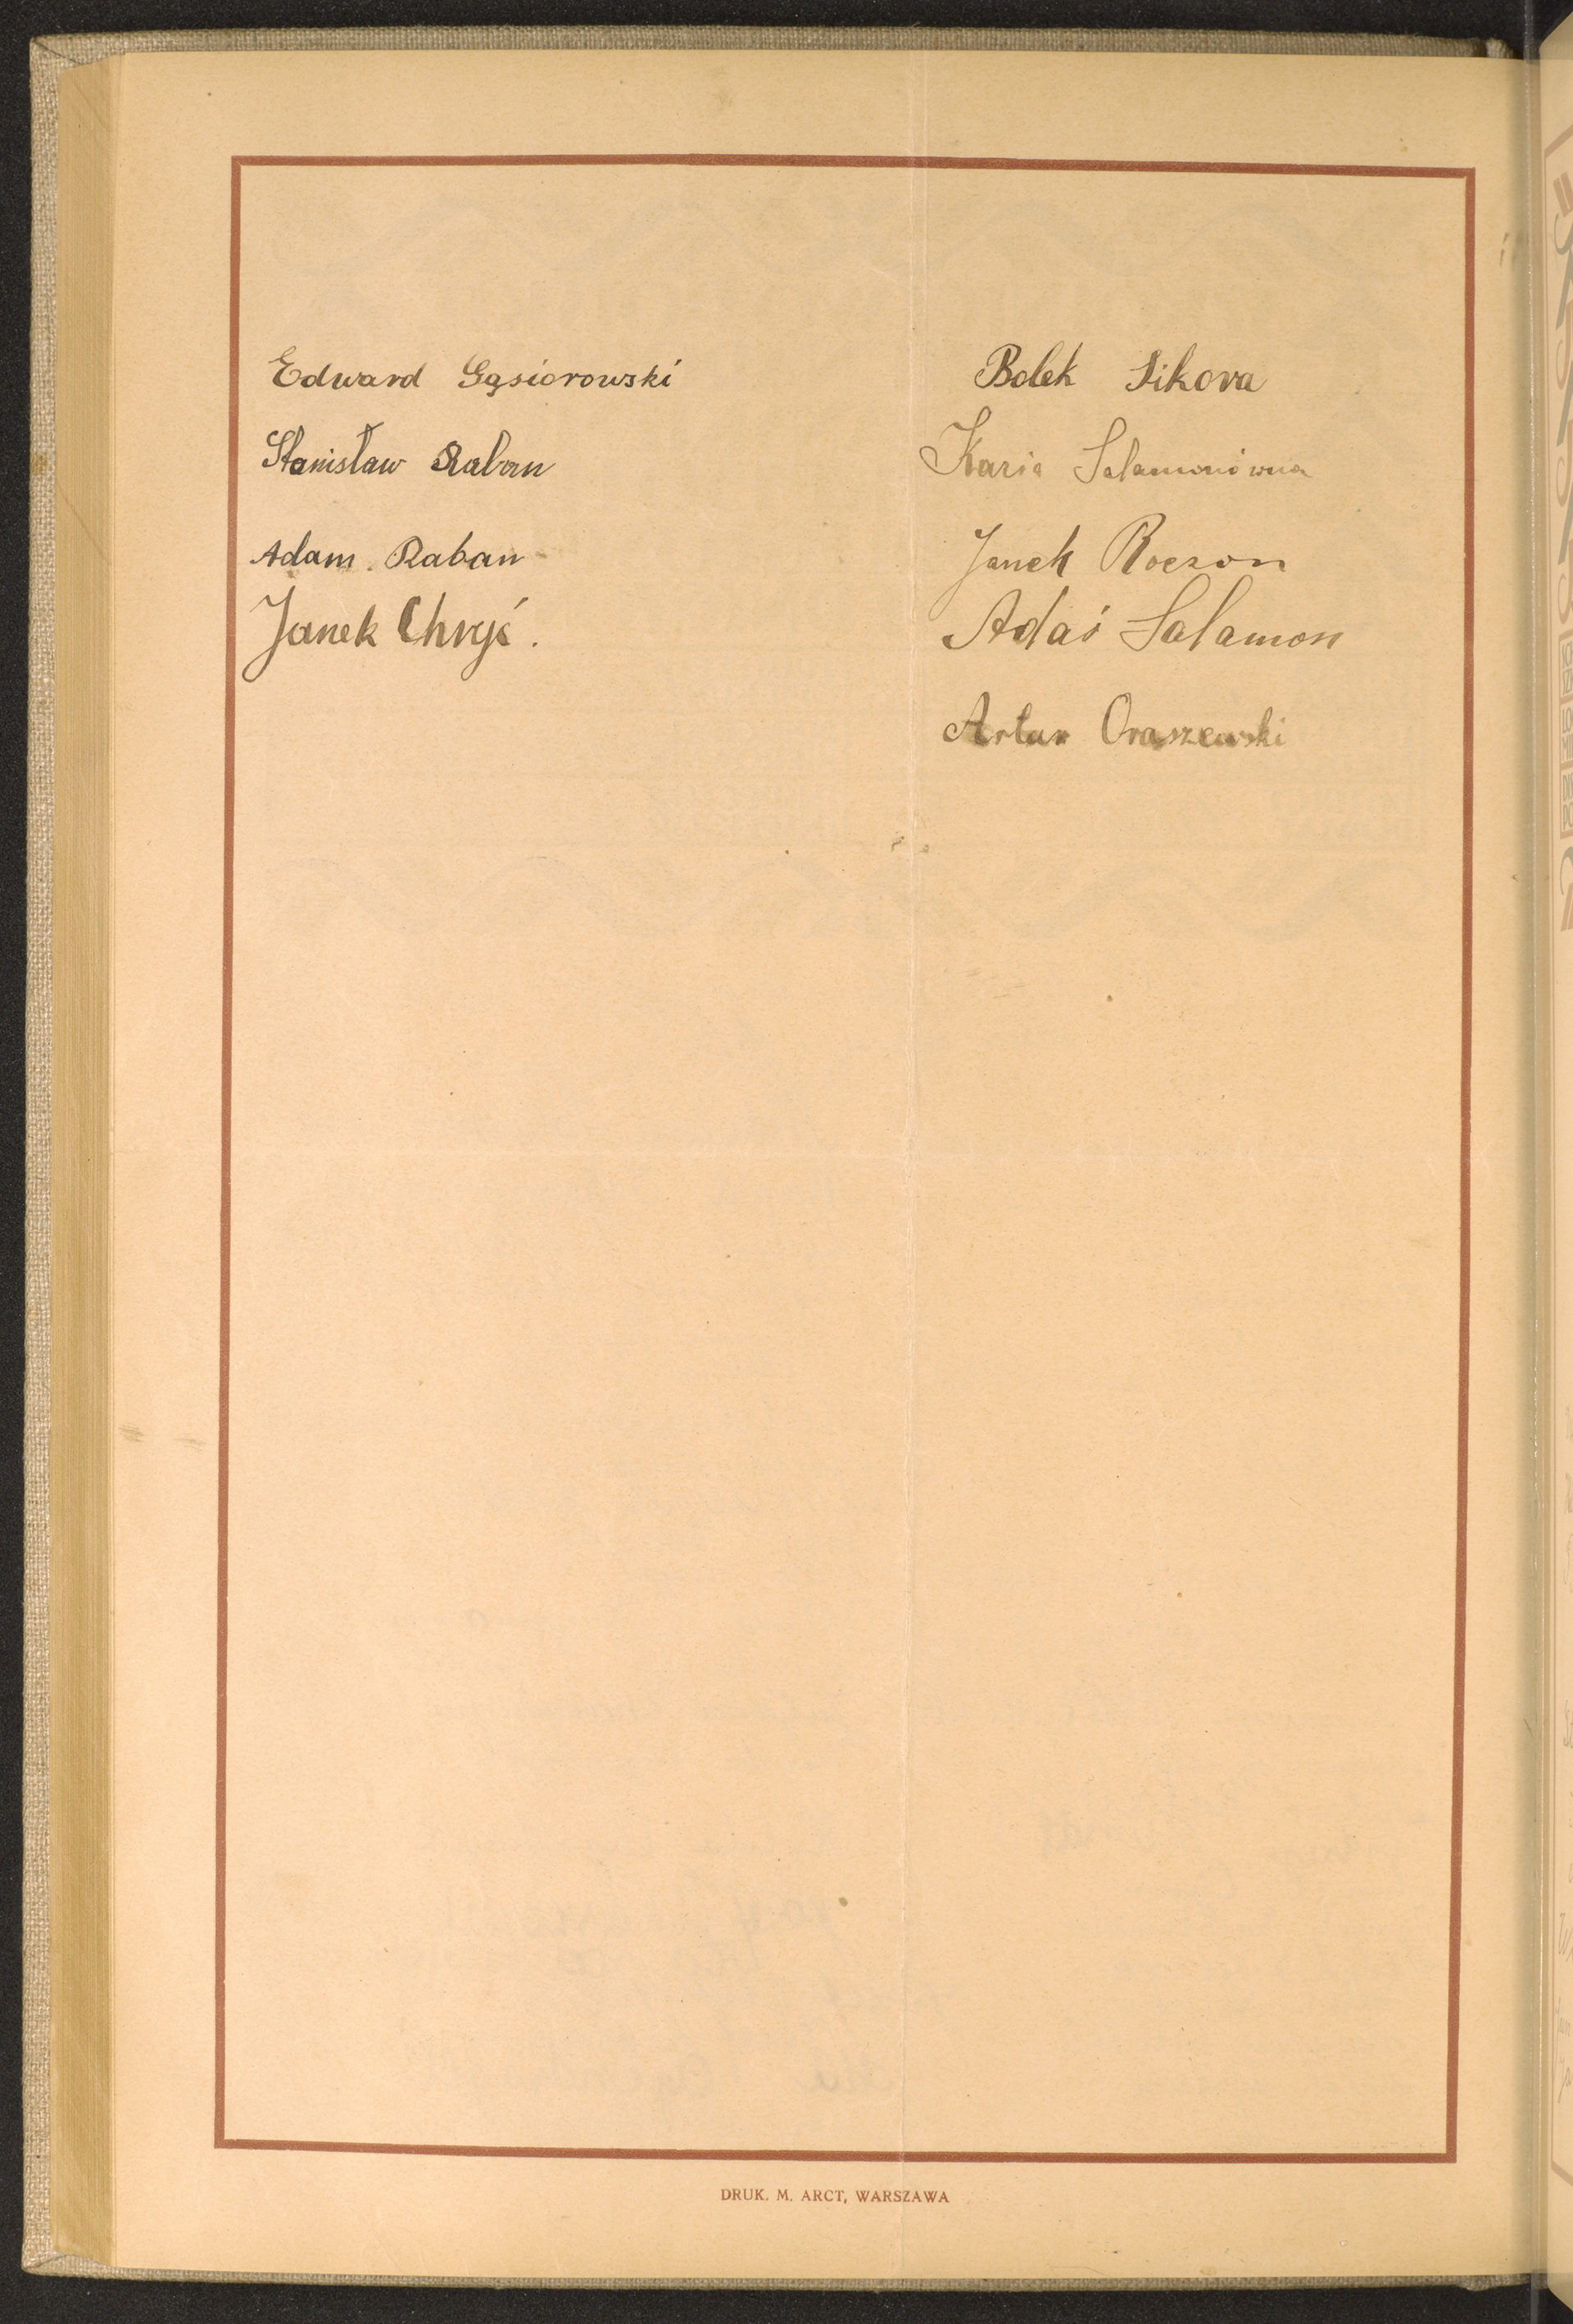 Edward Gąsiorowski
Stanisław Raban
Adam Raban
Janek Chryć.
Bolek Sikora
Kazia Salamonówna
Janek Roczon
Adaś Salamon
Artur Oraszewski
DRUK. M. ARCT, WARSZAWA